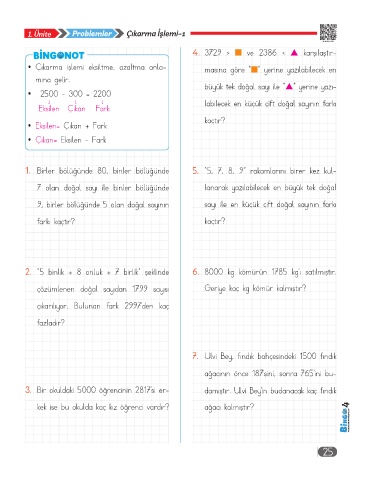 1. Ünite
Problemler
Çıkarma İşlemi-1
BİNGONOT
• Çıkarma işlemi eksiltme, azaltma anla-
mına gelir.
• 2500 - 300 = 2200
Eksilen Çıkan Fark
• Eksilen= Çıkan + Fark
• Çıkan= Eksilen - Fark
1. Birler bölüğünde 80, binler bölüğünde
7 olan doğal sayı ile binler bölüğünde
9, birler bölüğünde 5 olan doğal sayının
farkı kaçtır?
2. "5 binlik + 8 onluk + 7 birlik" şeklinde
çözümlenen doğal sayıdan 1799 sayısı
çıkarılıyor. Bulunan fark 2997'den kaç
fazladır?
3. Bir okuldaki 5000 öğrencinin 2817'si er-
kek ise bu okulda kaç kız öğrenci vardır?
4. 3729 > ■ ve 2386 < ▲ karşılaştır-
masına göre "■" yerine yazılabilecek en
büyük tek doğal sayı ile "▲" yerine yazı-
labilecek en küçük çift doğal sayının farkı
kaçtır?
5. "5, 7, 8, 9" rakamlarını birer kez kul-
lanarak yazılabilecek en büyük tek doğal
sayı ile en küçük çift doğal sayının farkı
kaçtır?
6. 8000 kg kömürün 1785 kg'ı satılmıştır.
Geriye kaç kg kömür kalmıştır?
7. Ulvi Bey, fındık bahçesindeki 1500 fındık
ağacının önce 187'sini, sonra 765'ini bu-
damıştır. Ulvi Bey'in budanacak kaç fındık
ağacı kalmıştır?
BİNGO 4
25